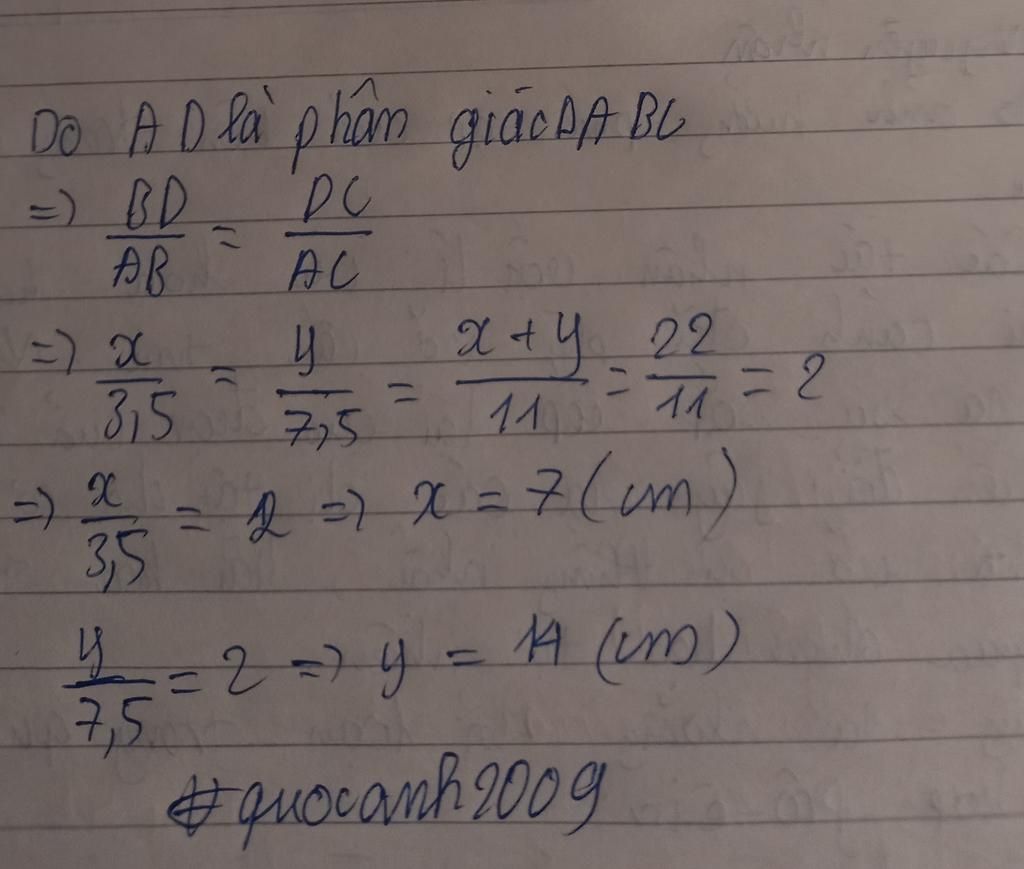 Do AD là phân giác ΔABC
=> BD/AB = DC/AC
=> x/3,5 = y/7,5 = x+y/11 = 22/11 = 2
=> x/3,5 = 2 => x = 7 (cm)
y/7,5 = 2 => y = 14 (cm)
#quocanh2009